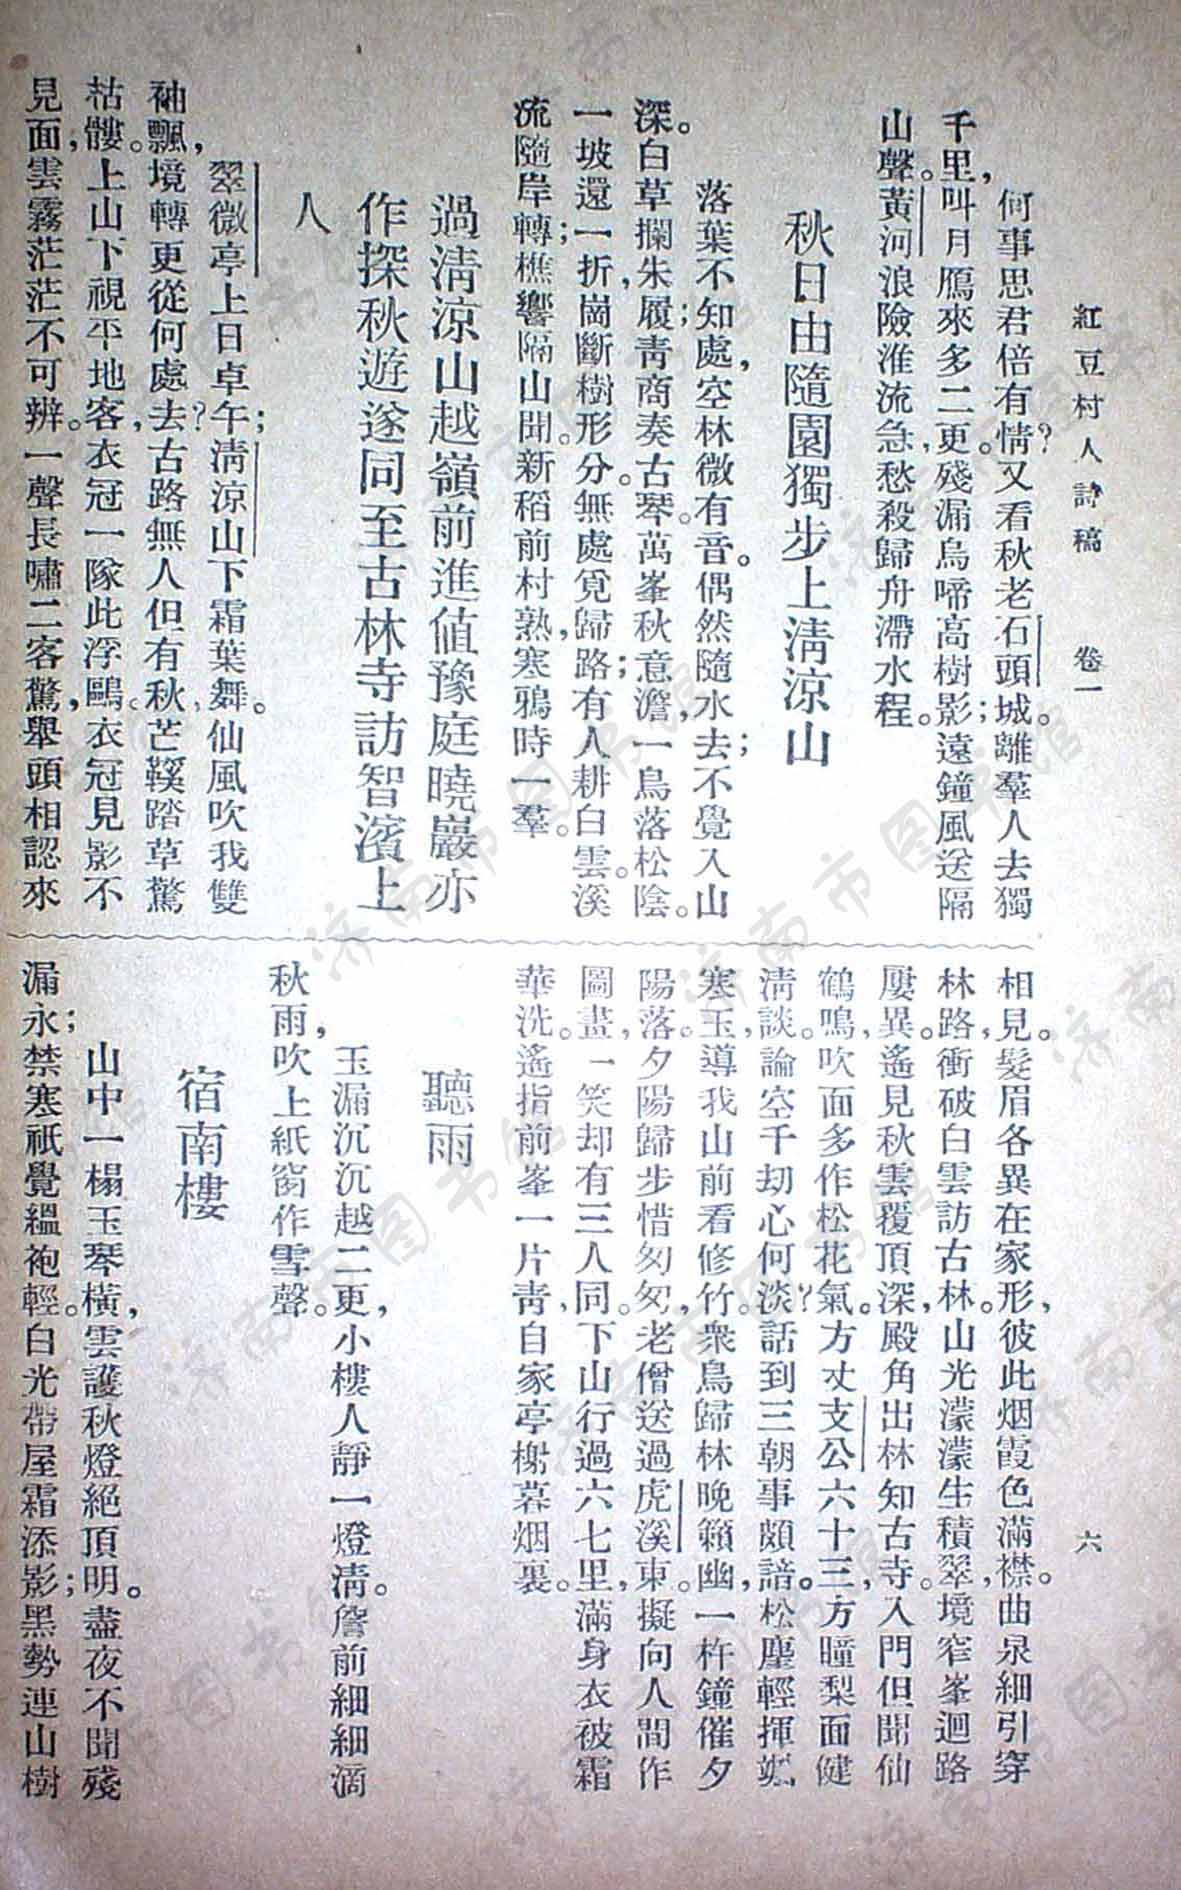 紅豆村人詩稿　卷一　六
何事思君倍有情？又看秋老石頭城。離羣人去獨
千里，叫月鴈來多二更。殘漏烏啼高樹影；遠鐘風送隔
山聲。黃河浪險淮流急，愁殺歸舟滯水程。
秋日由隨園獨步上淸涼山
落葉不知處，空林微有音。偶然隨水去；不覺入山
深。白草攔朱履；靑商奏古琴。萬峯秋意澹，一鳥落松陰。
一坡還一折，崗斷樹形分。無處覓歸路；有人耕白雲。溪
流隨岸轉；樵響隔山聞。新稻前村熟，寒鴉時一羣。
過淸涼山越嶺前進値豫庭曉巖亦
作探秋遊遂同至古林寺訪智濱上
人
翠微亭上日卓午；淸涼山下霜葉舞。仙風吹我雙
袖飄，境轉更從何處去？古路無人但有秋，芒鞵踏草驚
枯髏。上山下視平地客，衣冠一隊此浮鷗。衣冠見影不
見面，雲霧茫茫不可辨。一聲長嘯二客驚，舉頭相認來
相見。髮眉各異在家形，彼此烟霞色滿襟。曲泉細引穿
林路，衝破白雲訪古林。山光濛濛生積翠，境窄峯迴路
屢異。遙見秋雲覆頂深，殿角出林知古寺。入門但聞仙
鶴鳴，吹面多作松花氣。方丈支公六十三，方瞳梨面健
淸談。論空千刧心何淡？話到三朝事頗諳。松麈輕揮
寒玉，導我山前看修竹。衆鳥歸林晚籟幽，一杵鐘催夕
陽落。夕陽歸步惜匆匆，老僧送過虎溪東。擬向人間作
圖畫，一笑却有三人同。下山行過六七里，滿身衣被霜
華洗。遙指前峯一片靑，自家亭榭暮烟裏。
聽雨
玉漏沉沉越二更，小樓人靜一燈淸。簷前細細滴
秋雨，吹上紙窗作雪聲。
宿南樓
山中一榻玉琴橫，雲護秋燈絕頂明。盡夜不聞殘
漏永；禁寒祇覺縕袍輕。白光帶屋霜添影；黑勢連山樹